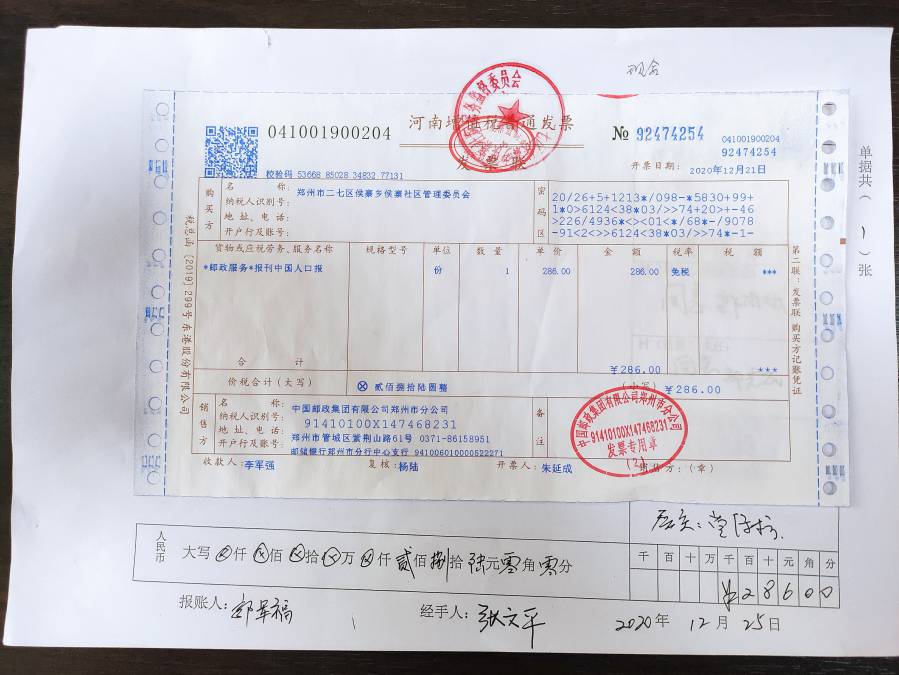 现金
河南增值税普通发票
发票联
041001900204
№ 92474254
041001900204
92474254
校验码 53668 85028 34832 77131
开票日期: 2020年12月21日
购买方
名 称: 郑州市二七区侯寨乡侯寨社区管理委员会
纳税人识别号:
地 址、电 话:
开户行及账号:
密码区
20/26+5+1213*/098-*5830+99+
1*0>6124<38*03/>>74+20>+-46
>226/4936*<>01<*/68*-/9078
-91<2<>>6124<38*03/>>74*-1-
货物或应税劳务、服务名称 规格型号 单位 数 量 单 价 金 额 税率 税 额
*邮政服务*报刊中国人口报 份 1 286.00 286.00 免税 ***
合 计 ¥286.00 ***
价税合计(大写) ⊗ 贰佰捌拾陆圆整 (小写) ¥286.00
销售方
名 称: 中国邮政集团有限公司郑州市分公司
纳税人识别号: 91410100X147468231
地 址、电 话: 郑州市管城区紫荆山路61号 0371-86158951
开户行及账号: 邮储银行郑州市分行中心支行 941006010000522271
备注
收款人: 李军强 复核: 杨陆 开票人: 朱延成 销售方:(章)
中国邮政集团有限公司郑州市分公司
91410100X147468231
发票专用章
(2)
税总函〔2019〕299号 东港股份有限公司
第二联:发票联 购买方记账凭证
单据共( 1 )张
人民币
大写 ⊗仟⊗佰⊗拾⊗万⊗仟贰佰捌拾陆元零角零分
千 百 十 万 千 百 十 元 角 分
¥ 2 8 6 0 0
报账人: 经手人: 张文平 2020年 12月 25日